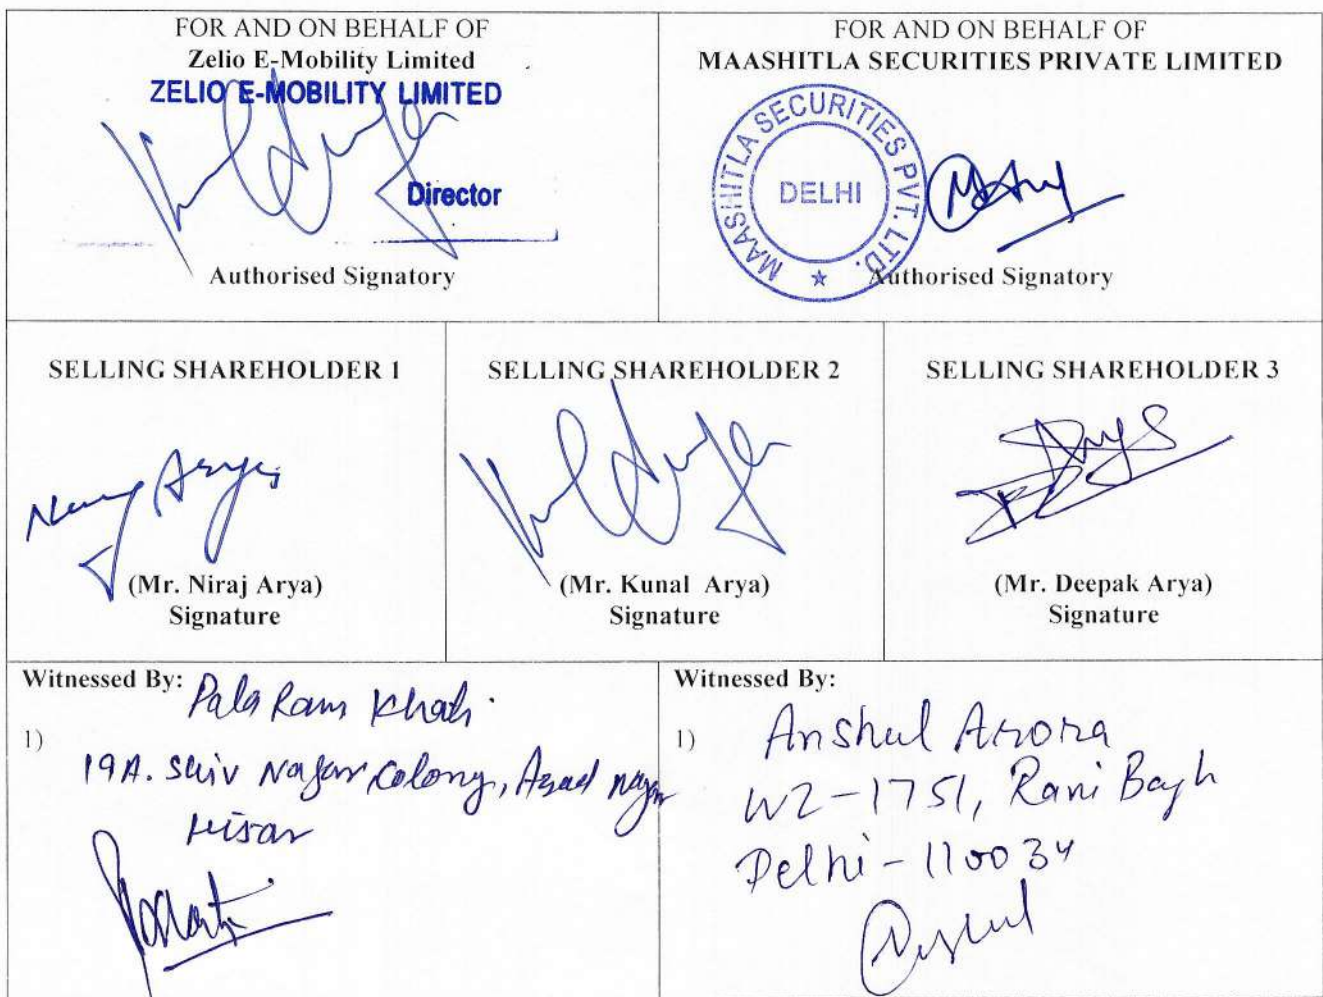 FOR AND ON BEHALF OF
Zelio E-Mobility Limited
ZELIO E-MOBILITY LIMITED
Director
Authorised Signatory
FOR AND ON BEHALF OF
MAASHITLA SECURITIES PRIVATE LIMITED
MAASHITLA SECURITIES PVT. LTD.
DELHI
Authorised Signatory
SELLING SHAREHOLDER 1
(Mr. Niraj Arya)
Signature
SELLING SHAREHOLDER 2
(Mr. Kunal Arya)
Signature
SELLING SHAREHOLDER 3
(Mr. Deepak Arya)
Signature
Witnessed By:
Pala Ram
1)
19A. Shiv Nagar Colony, Azad Nagar
Hisar
Witnessed By:
1) Anshul Arora
WZ-1751, Rani Bagh
Delhi-110034